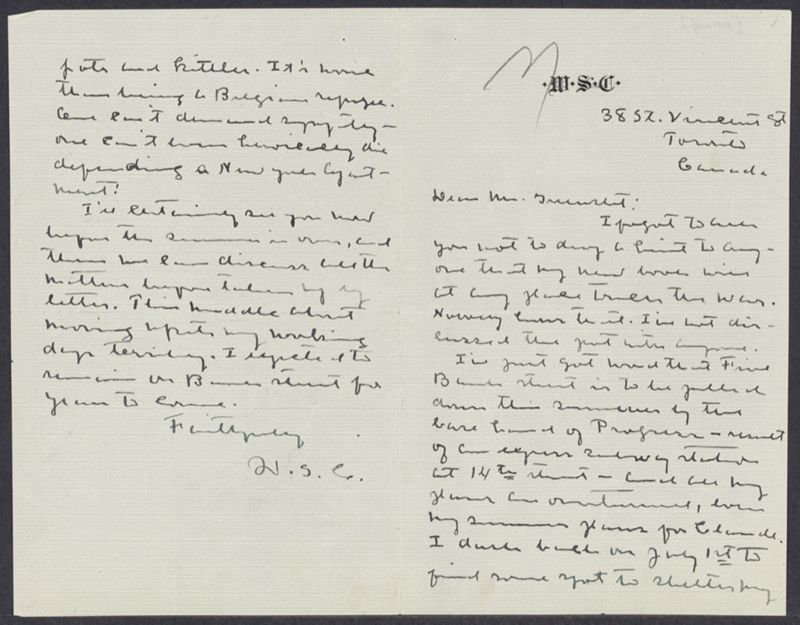 ·W·S·C·
38 St. Vincent St
Toronto
Canada
Dear Mr. Greenslet:
I forgot to ask
you not to drop a hint to any-
one that my new book will
at any place touch the war.
Nobody knows that. I've not dis-
cussed that part with anyone.
I've just got word that Five
Bank street is to be pulled
down this summer by the
bare hand of Progress – result
of an express subway station
at 14th street – and all my
plans are overturned, even
my summer plans for Canada.
I dash back on July 1st to
find some spot to shelter my
pots and kettles. It's worse
than being a Belgian refugee.
One can't demand sympathy –
one can't even heroically die
defending a New York apart-
ment!
I'll certainly see you now
before the summer is over, and
then we can discuss all the
matters before taken up by
letter. This muddle about
moving upsets my working
days terribly. I expected to
remain on Bank street for
years to come.
Faithfully
W. S. C.